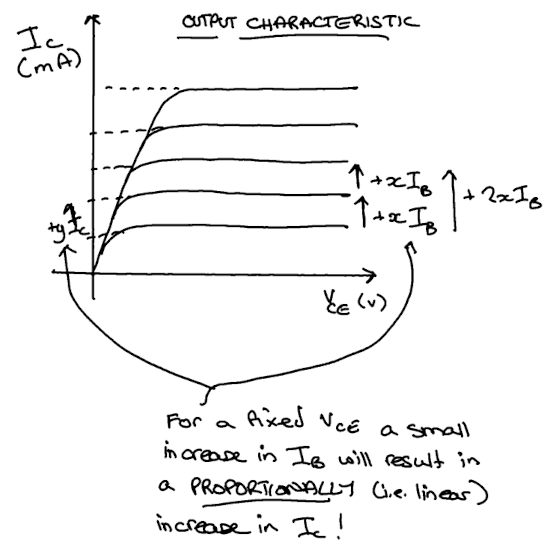 OUTPUT CHARACTERISTIC
I_C
(mA)
+xI_B
+xI_B
+2xI_B
+yI_C
V_CE (v)
For a fixed V_CE a small
increase in I_B will result in
a PROPORTIONALLY (i.e. linear)
increase in I_C!